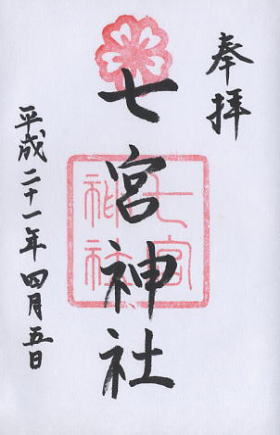 奉拝
七宮神社
七宮神社
平成二十一年四月五日